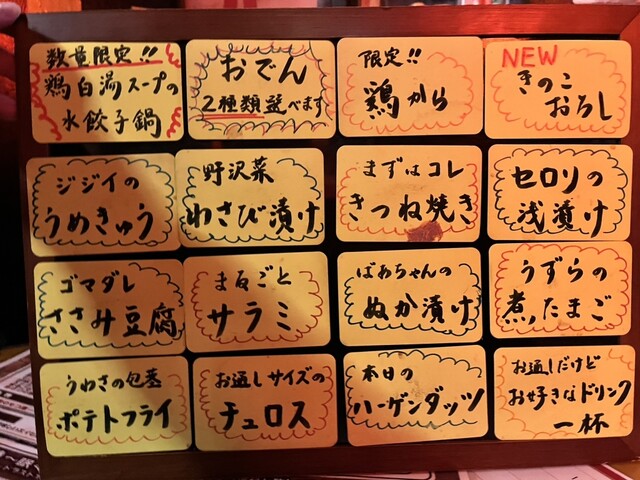 数量限定!!
鶏白湯スープの
水餃子鍋
おでん
2種類選べます
限定!!
鶏から
NEW
きのこ
おろし
ジジイの
うめきゅう
野沢菜
わさび漬け
まずはコレ
きつね焼き
セロリの
浅漬け
ゴマダレ
ささみ豆腐
まるごと
サラミ
ばあちゃんの
ぬか漬け
うずらの
煮たまご
うわさの包茎
ポテトフライ
お通しサイズの
チュロス
本日の
ハーゲンダッツ
お通しだけど
お好きなドリンク
一杯